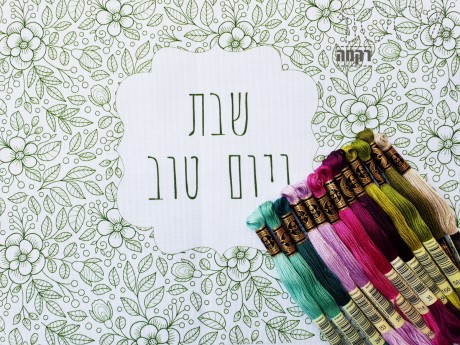 רקמה
שבת
ויום טוב